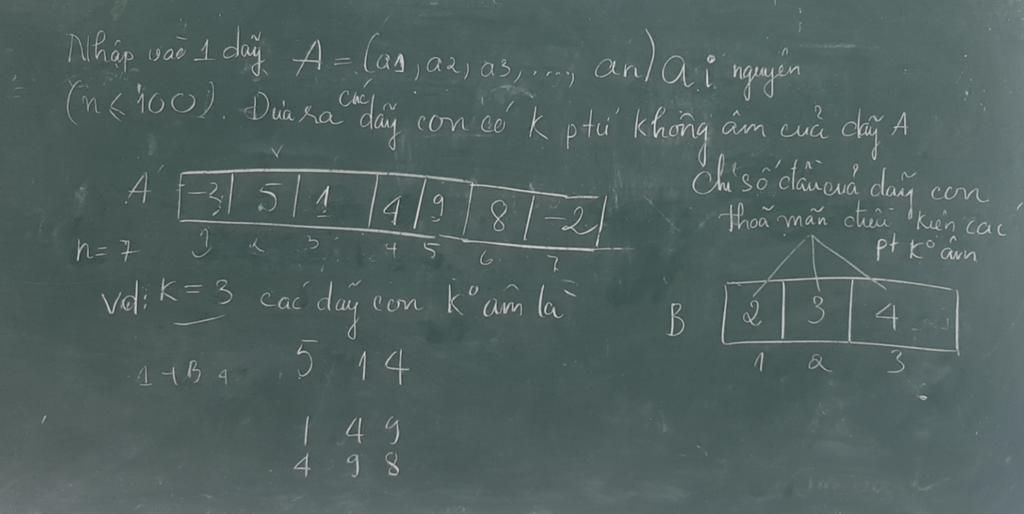 Nhập vào 1 dãy A = (a1, a2, a3, ..., an) ai nguyên
(n ≤ 100). Đưa ra các dãy con có k ptử không âm của dãy A
A -3 5 1 4 9 8 -2
1 2 3 4 5 6 7
n = 7
Chỉ số đầu của dãy con
thoã mãn điều kiện các
pt k° âm
Vd: k = 3 các dãy con k° âm là
B 2 3 4
1 2 3
5 1 4
1 4 9
4 9 8